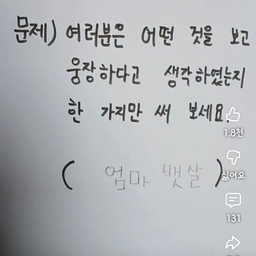 문제) 여러분은 어떤 것을 보고
웅장하다고 생각하였는지
한 가지만 써 보세요.
( 엄마 뱃살 )
1.8천
싫어요
131